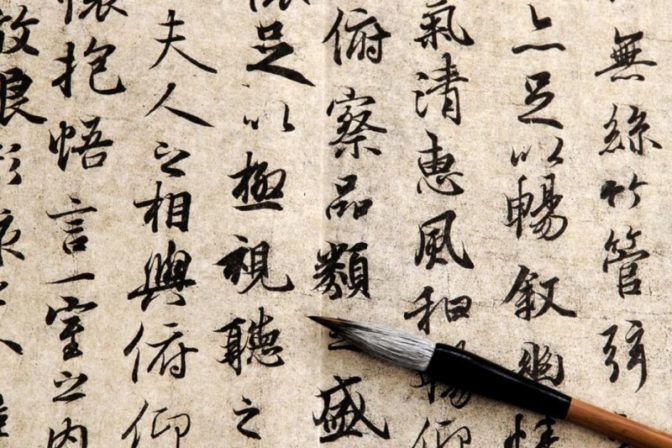 無絲竹管弦
亦足以暢叙幽情
氣清惠風和暢仰
俯察品類之盛
足以極視聽之
夫人之相與俯仰
懷抱悟言一室之内
放浪形骸之